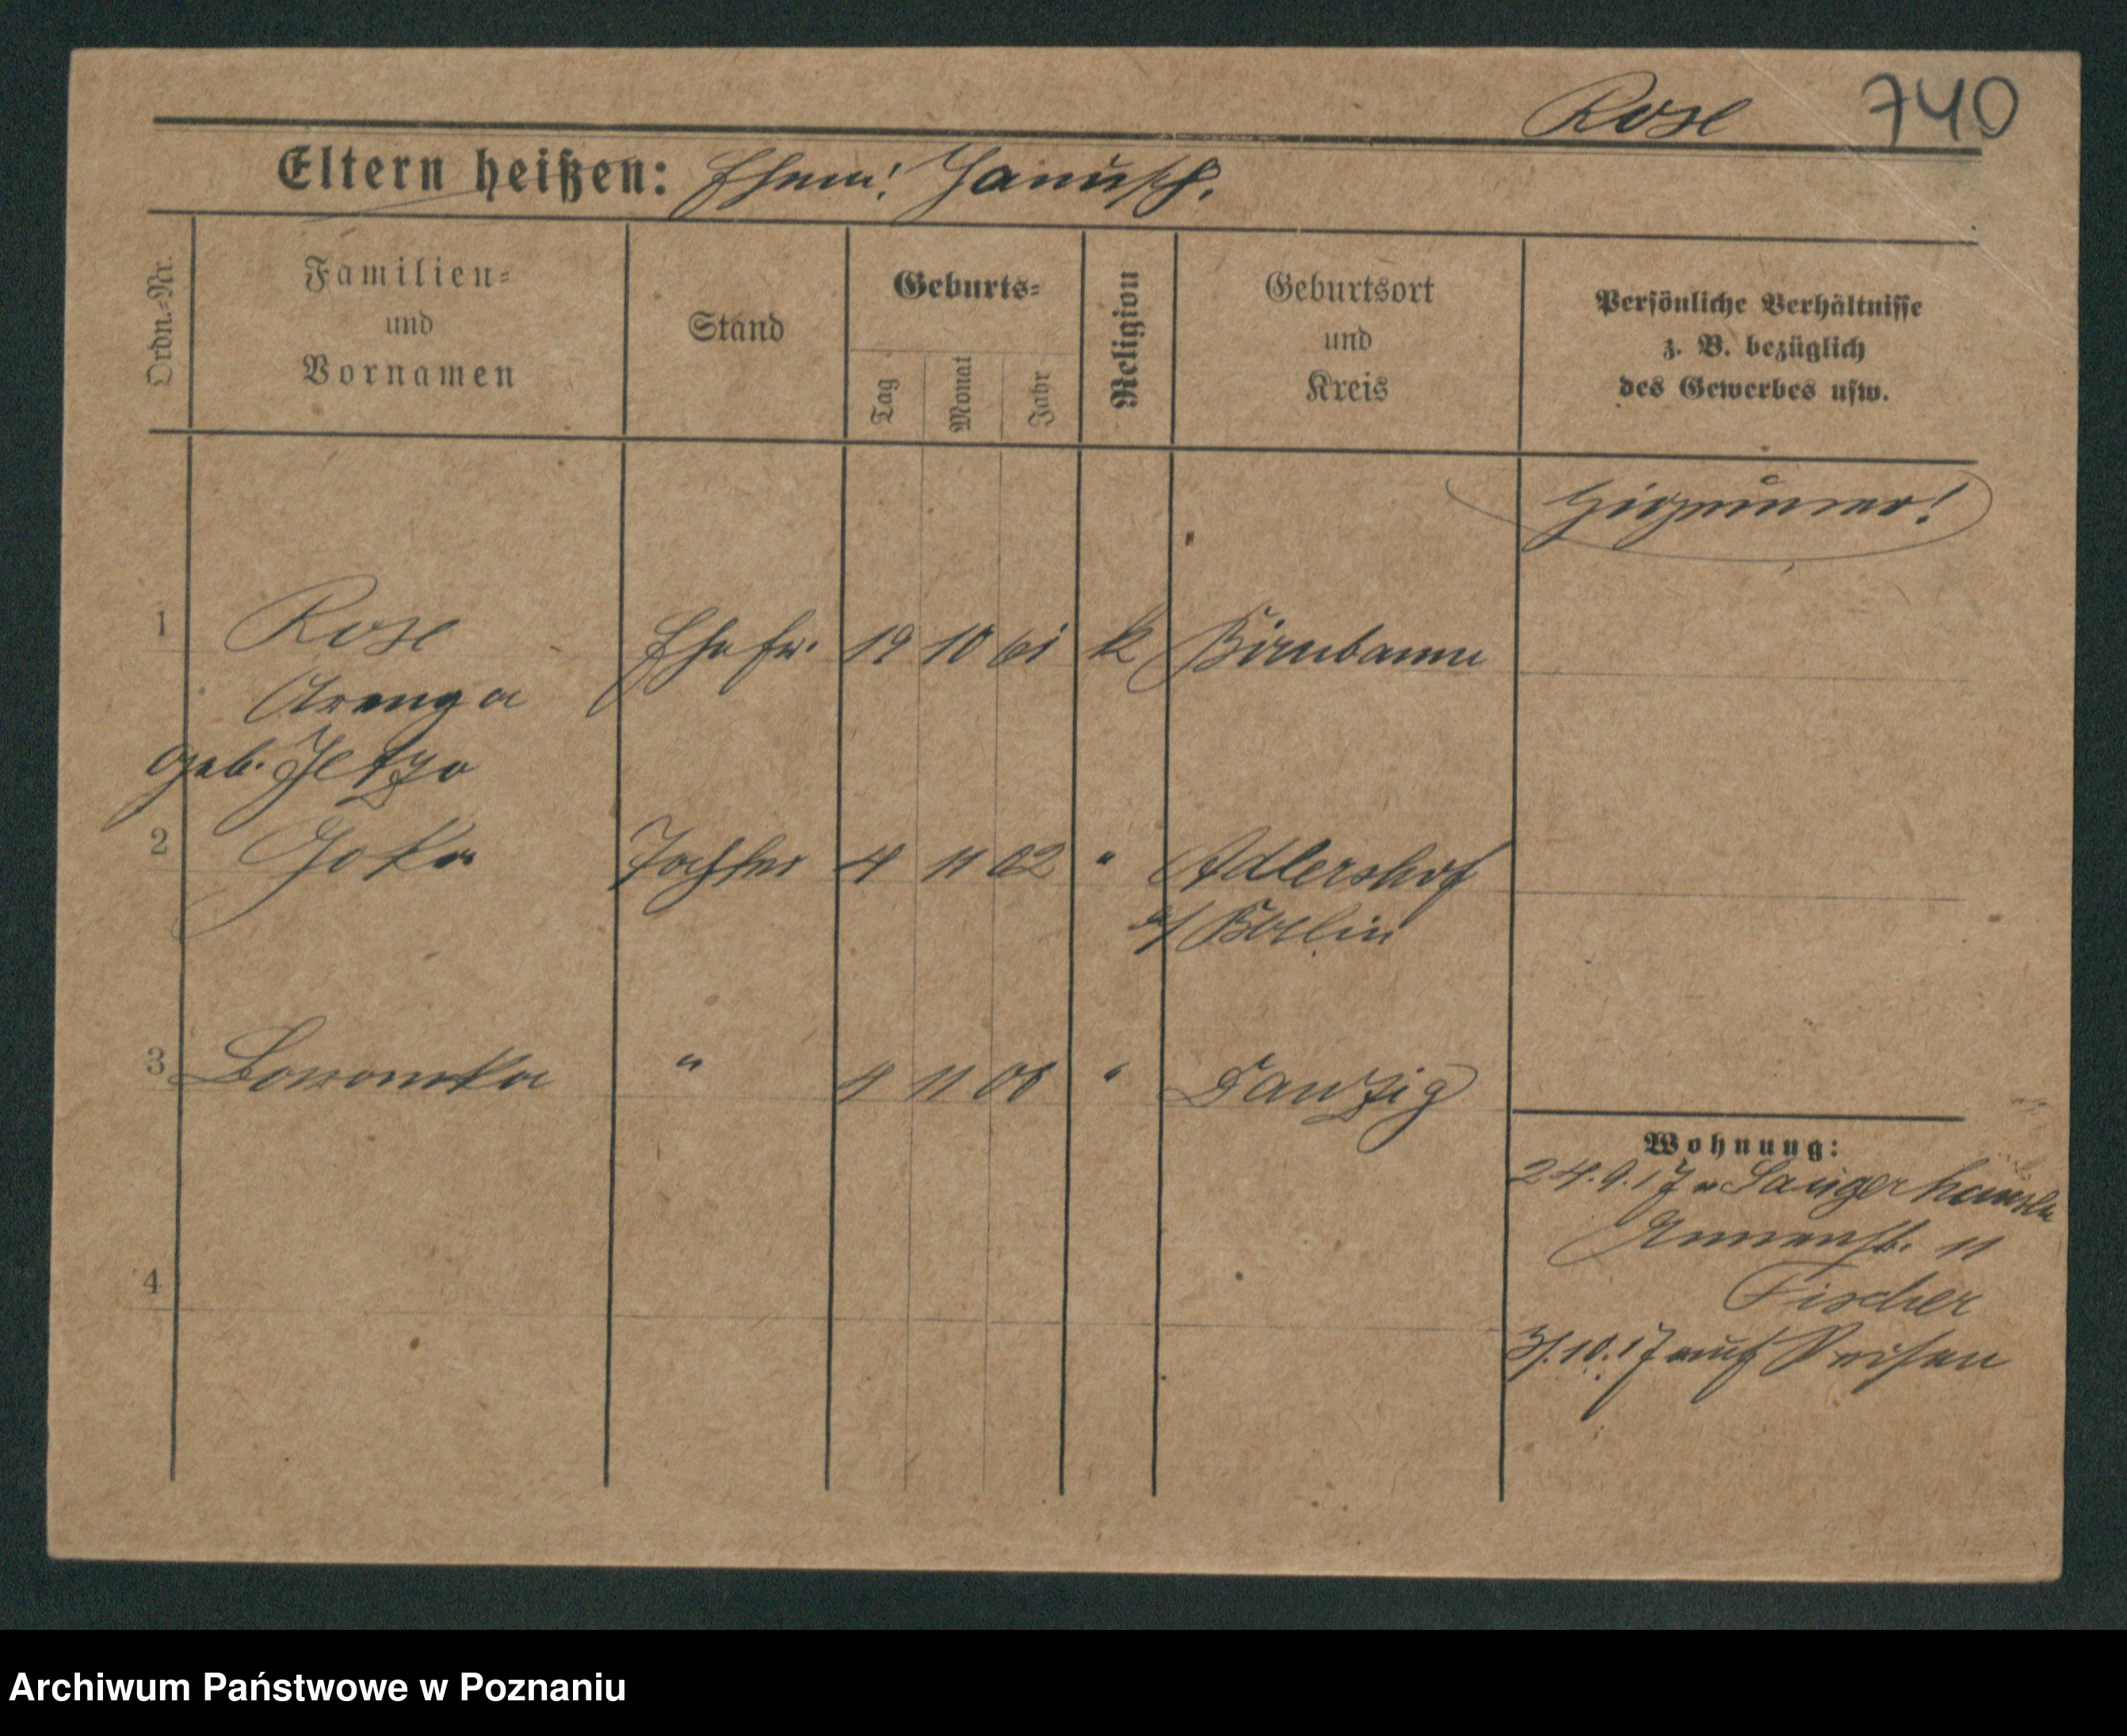 Rose 740
Eltern heißen: Ehem: Janusch.
Ordn.-Nr.
Familien-
und
Vornamen
Stand
Geburts-
Tag
Monat
Jahr
Religion
Geburtsort
und
Kreis
Persönliche Verhältnisse
z. B. bezüglich
des Gewerbes usw.
Zigeuner!
1 Rose Ehefr. 19 10 61 k Birnbaum
geb.
2 Tochter 4 11 02 " Adlershof
b/ Berlin
3 " 4 11 " Danzig
Wohnung:
24.9.17 v Sangerhausen
11
Fischer
4
31.10.17 auf Reisen
Archiwum Państwowe w Poznaniu